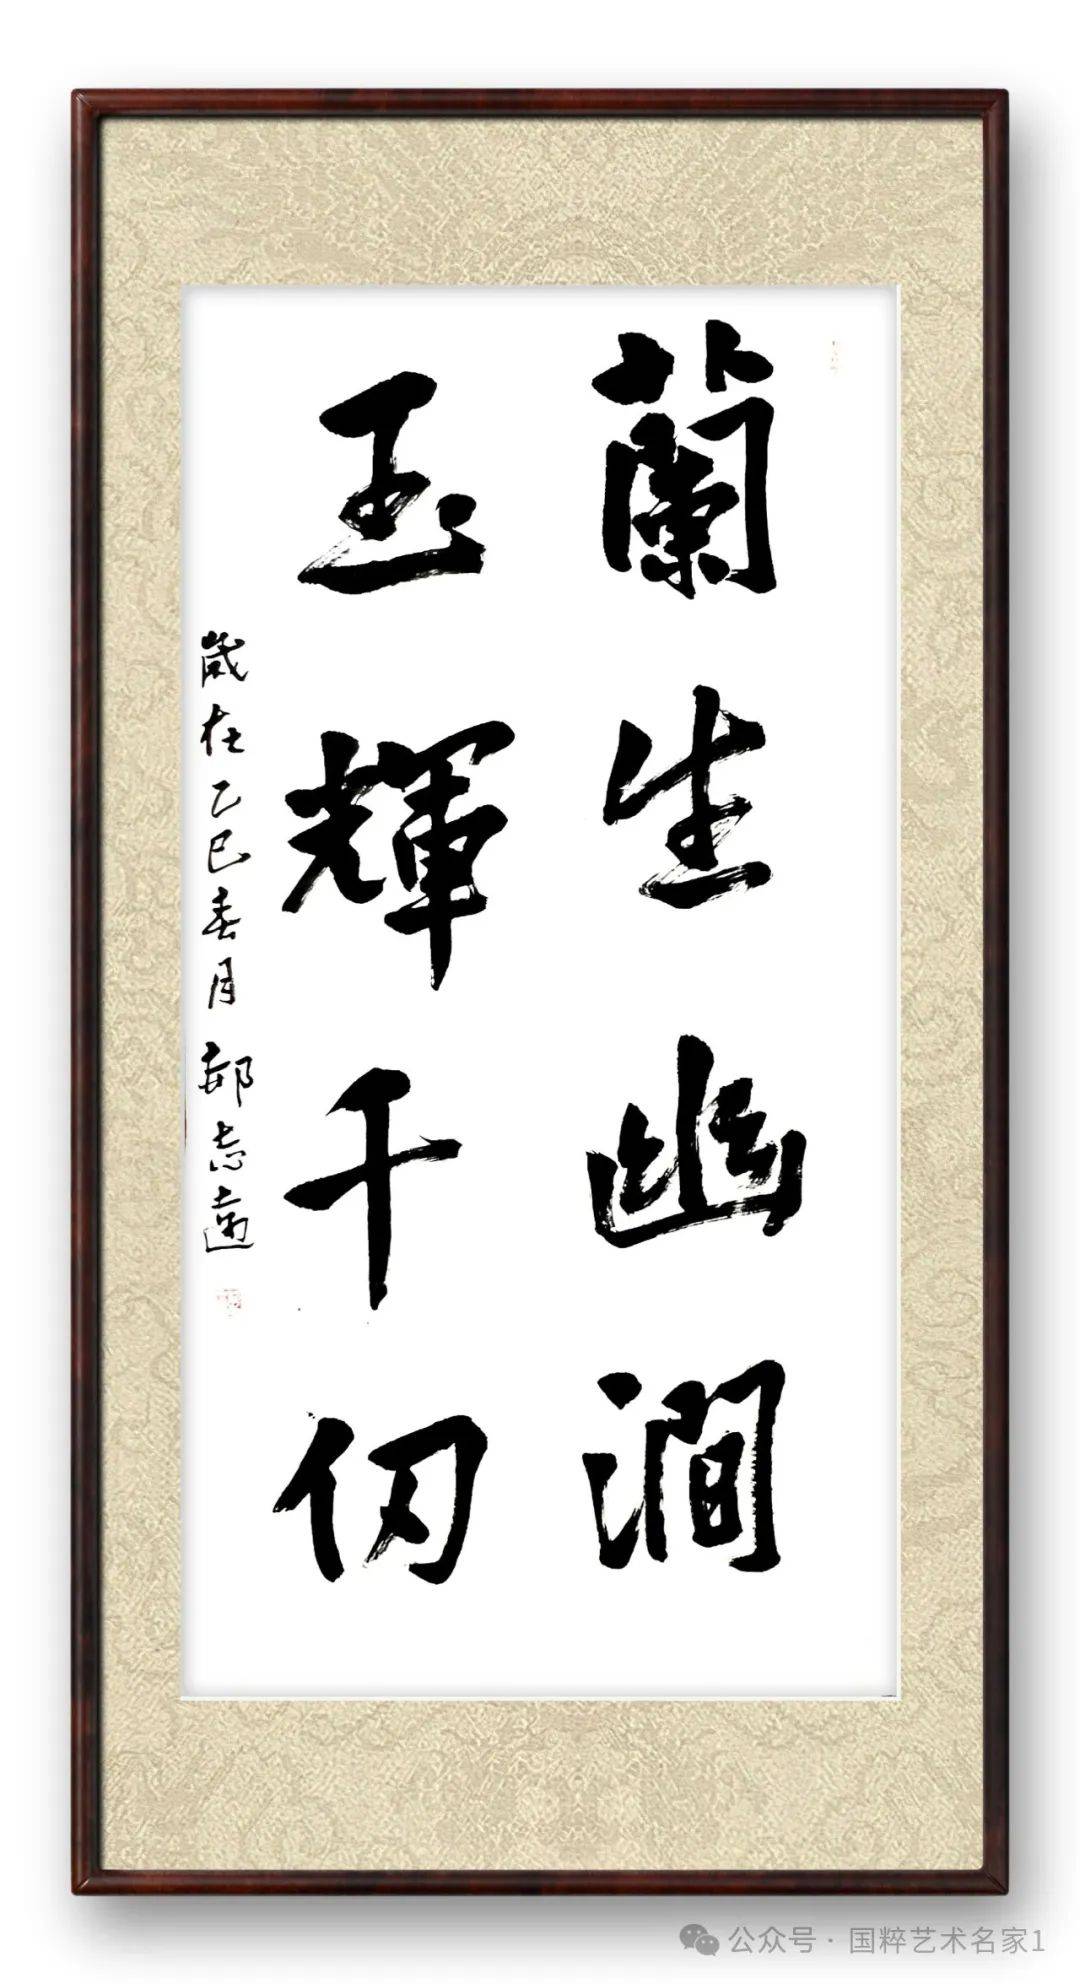 蘭生幽澗
玉輝千仞
歲在乙巳春月 郝志遠
公众号·国粹艺术名家1